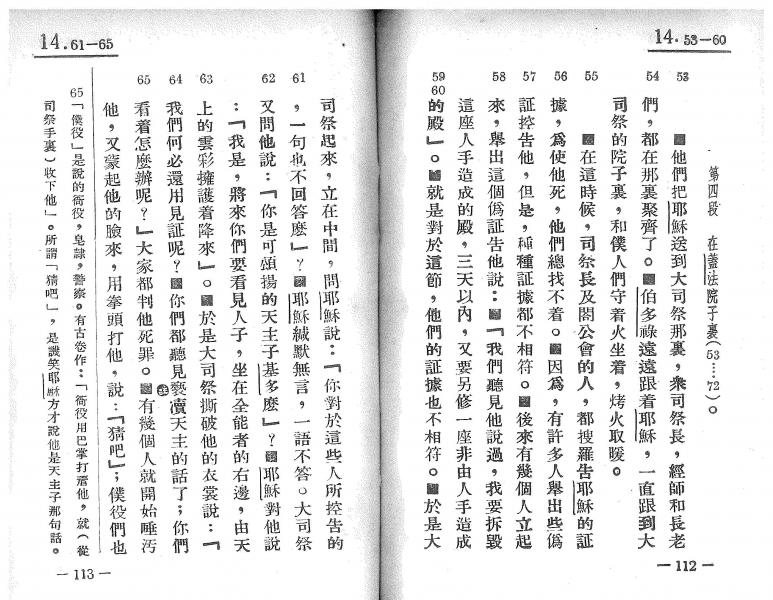 14.53—60
第四段　在蓋法院子裏(53……72)。
53　■他們把耶穌送到大司祭那裏，衆司祭長，經師和長老
54　們，都在那裏聚齊了。■伯多祿遠遠跟着耶穌，一直跟到大
司祭的院子裏，和僕人們守着火坐着，烤火取暖。
55　■在這時候，司祭長及閤公會的人，都搜羅告耶穌的証
56　據，爲使他死，他們總找不着。■因爲，有許多人舉出些僞
57　証控告他，但是，種種証據都不相符。■後來有幾個人立起
58　來，舉出這個僞証告他說：■「我們聽見他說過，我要拆毀
這座人手造成的殿，三天以內，又要另修一座非由人手造成
59 60　的殿」。■就是對於這節，他們的証據也不相符。■於是大
— 112 —
14.61—65
司祭起來，立在中間，問耶穌說：「你對於這些人所控告的
61　，一句也不回答麽」？■耶穌緘默無言，一語不答。大司祭
62　又問他說：「你是可頌揚的天主子基多麽」？■耶穌對他說
：「我是，將來你們要看見人子，坐在全能者的右邊，由天
63　上的雲彩擁護着降來」。■於是大司祭撕破他的衣裳說：「
64　我們何必還用見証呢？■你們都聽見褻瀆天主的話了；你們
65　看着怎麽辦呢？」大家都判他死罪。■有幾個人就開始唾汚
他，又蒙起他的臉來，用拳頭打他，說：「猜吧」；僕役們也
65「僕役」是說的衙役，皂隸，警察。有古卷作：「衙役用巴掌打着他，就(從
司祭手裏)收下他」。所謂「猜吧」，是譏笑耶穌方才說他是天主子那句話。
— 113 —